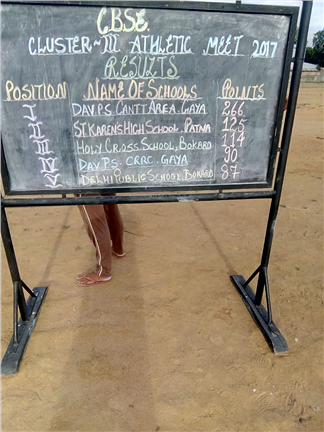 CBSE.
CLUSTER-III ATHLETIC MEET 2017
RESULTS
POSITION NAME OF SCHOOLS POINTS
I DAV.P.S. CANTT AREA, GAYA 266
II ST. KAREN'S HIGH SCHOOL, PATNA 125
III HOLY CROSS SCHOOL, BOKARO 114
IV DAV P.S. CRRC. GAYA 90
V DELHI PUBLIC SCHOOL, BOKARO 87